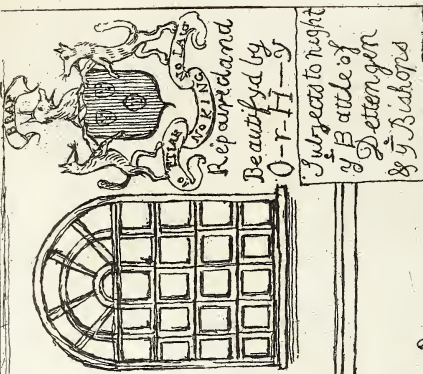 NO ALTAR
NO KING
NO LAW
Repaired and
Beautifyd by
O-r H--y
Subjects to night
yͤ Battle of
Dettengen
& yͤ Bishops